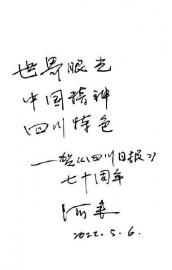 世界眼光
中国精神
四川特色
——贺《四川日报》
七十周年
阿来
2022.5.6.